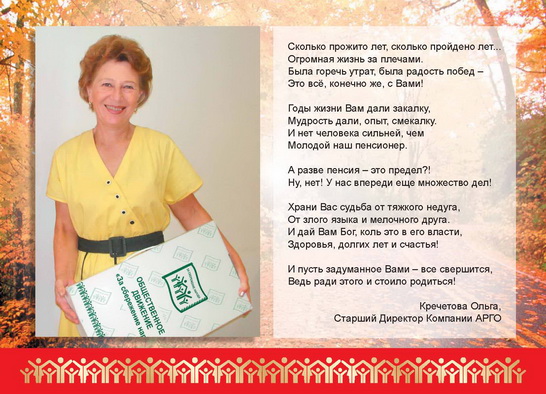 Сколько прожито лет, сколько пройдено лет...
Огромная жизнь за плечами.
Была горечь утрат, была радость побед –
Это всё, конечно же, с Вами!
Годы жизни Вам дали закалку,
Мудрость дали, опыт, смекалку.
И нет человека сильней, чем
Молодой наш пенсионер.
А разве пенсия – это предел?!
Ну, нет! У нас впереди еще множество дел!
Храни Вас судьба от тяжкого недуга,
От злого языка и мелочного друга.
И дай Вам Бог, коль это в его власти,
Здоровья, долгих лет и счастья!
И пусть задуманное Вами – все свершится,
Ведь ради этого и стоило родиться!
Кречетова Ольга,
Старший Директор Компании АРГО
ОБЩЕСТВЕННОЕ
ДВИЖЕНИЕ
«За сбережение